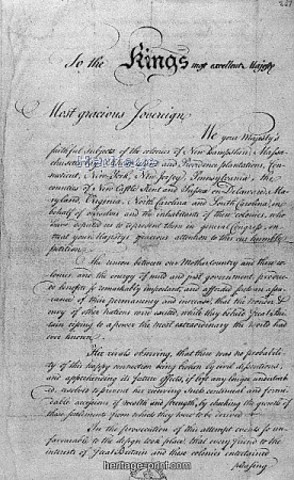 221
To the Kings most excellent Majesty
Most gracious Sovereign
We your Majesty's
faithful subjects of the colonies of New Hampshire, Massa-
chusetts and Providence plantations, Con-
necticut, New-York, New Jersey, Pennsylvania, the
counties of New Castle Kent and Sussex on Delaware, Ma-
ryland, Virginia, North Carolina and South Carolina, in
behalf of ourselves and the inhabitants of these colonies, who
have deputed us to represent them in general Congress, en-
treat your Majesty's gracious attention to this our humble
petition.
The union between our Mother Country and these co-
lonies, and the energy of mild and just government, produced
benefits so remarkably important, and afforded such an assu-
rance of their permanency and increase, that the wonder &
envy of other Nations were excited, while they beheld Great Bri-
tain rising to a power the most extraordinary the world had
ever known.
Her rivals observing, that there was no probabi-
lity of this happy connection being broken by civil dissentions,
and apprehending its future effects, if left any longer undisturb-
ed, resolved to prevent her receiving such continual and formi-
dable accessions of wealth and strength, by checking the growth of
these settlements from which they were to be derived.
In the prosecution of this attempt events so un-
favourable to the design took place, that every friend to the
interest of Great Britain and these colonies entertained
pleasing
heritage-print.com